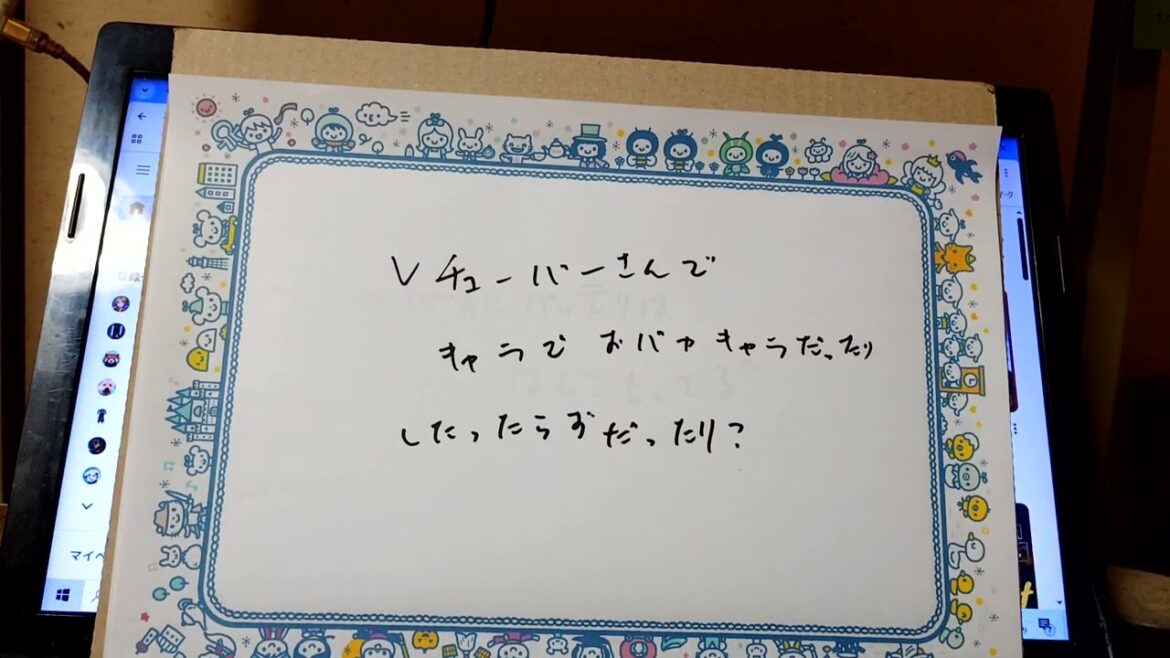 Vチューバーさんで
キャラでおバカキャラだったり
したったらずだったり?
マイペ